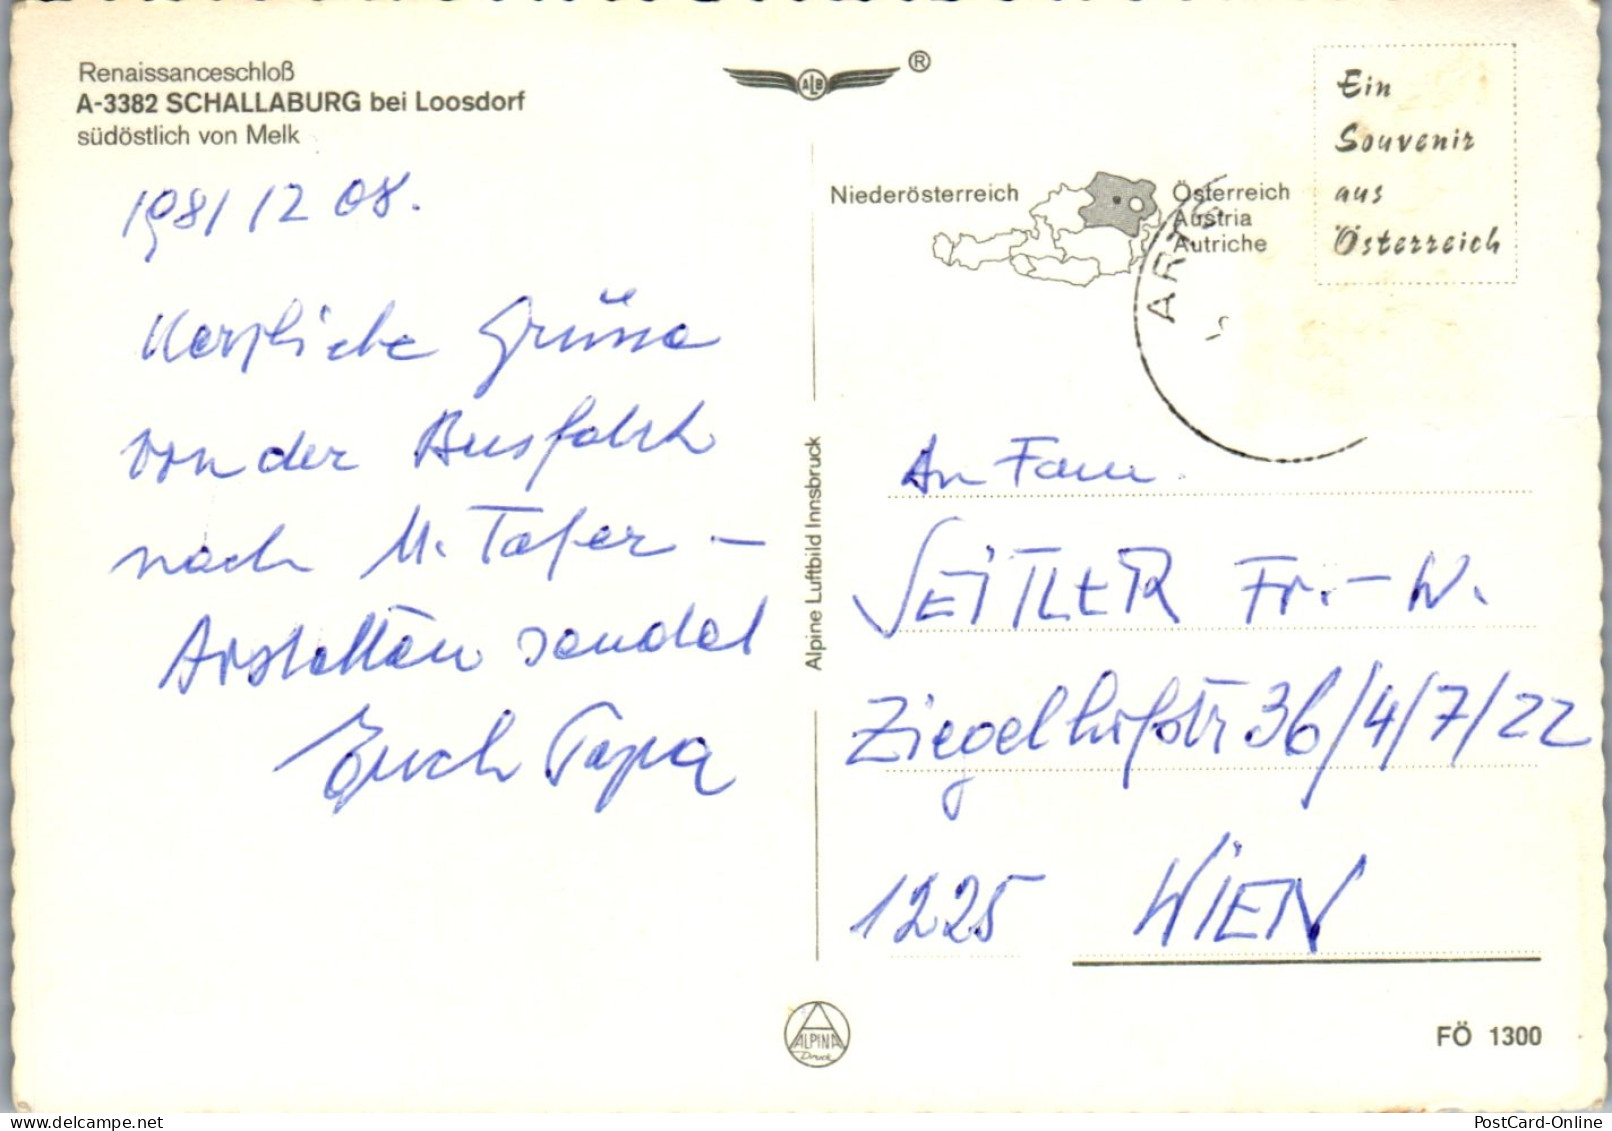 Renaissanceschloß
A-3382 SCHALLABURG bei Loosdorf
südöstlich von Melk
1981 12 08.
Herzliche Grüsse
von der Busfahrt
nach M. Tafer –
Arstetten sendet
Euch Papa
ALB
®
Niederösterreich
Österreich
Austria
Autriche
Ein
Souvenir
aus
Österreich
ART
Alpine Luftbild Innsbruck
An Fam.
SEITLER Fr.-W.
Ziegelhofstr 36/4/7/22
1225 WIEN
ALPINA
Druck
FÖ 1300
PostCard-Online